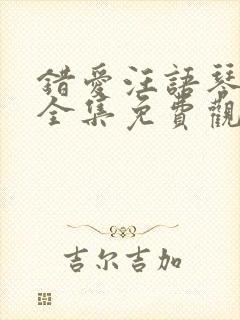 錯愛汪語琴
全集免費觀
吉尔吉加